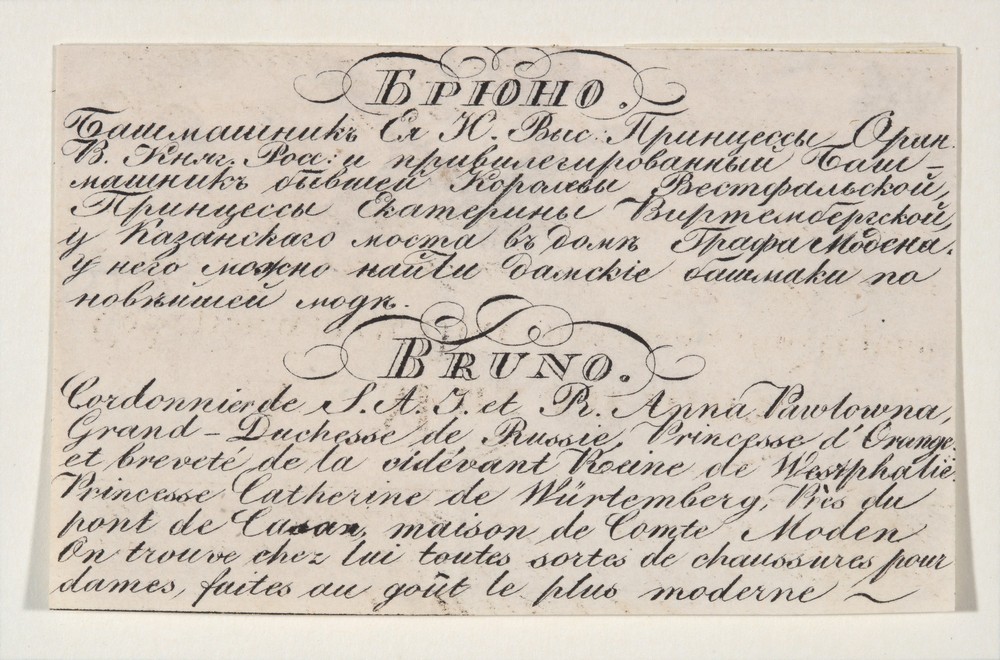 БРЮНО.
Башмашникъ Ея И. Выс: Принцессы Оран.
В. Княг. Росс: и привилегированный Баш-
машникъ бывшей Королевы Вестфальской,
Принцессы Екатерины Виртембергской,
у Казанскаго моста въ домѣ Графа Модена.
У него можно найти дамскіе башмаки по
новѣйшей модѣ.
BRUNO.
Cordonnier de S. A. I. et R. Anna Pawlowna,
Grand-Duchesse de Russie, Princesse d'Orange.
et breveté de la cidévant Reine de Westphalie.
Princesse Catherine de Würtemberg, Près du
pont de Casan, maison de Comte Moden
On trouve chez lui toutes sortes de chaussures pour
dames, faites au goût le plus moderne